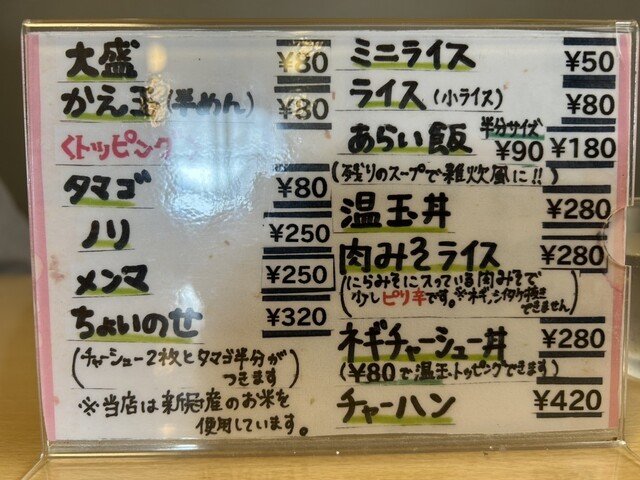 大盛 ¥80
かえ玉(半めん) ¥80
くトッピング
タマゴ ¥80
ノリ ¥250
メンマ ¥250
ちょいのせ ¥320
(チャーシュー2枚とタマゴ半分が
つきます)
※当店は新潟産のお米を
使用しています。
ミニライス ¥50
ライス(小ライス) ¥80
あらい飯 半分サイズ ¥90 ¥180
(残りのスープで雑炊風に!!)
温玉丼 ¥280
肉みそライス ¥280
(にらみそに入っている肉みそで
少しピリ辛です。※ネギ、シイタケ抜き
できません)
ネギチャーシュー丼 ¥280
(¥80で温玉トッピングできます)
チャーハン ¥420